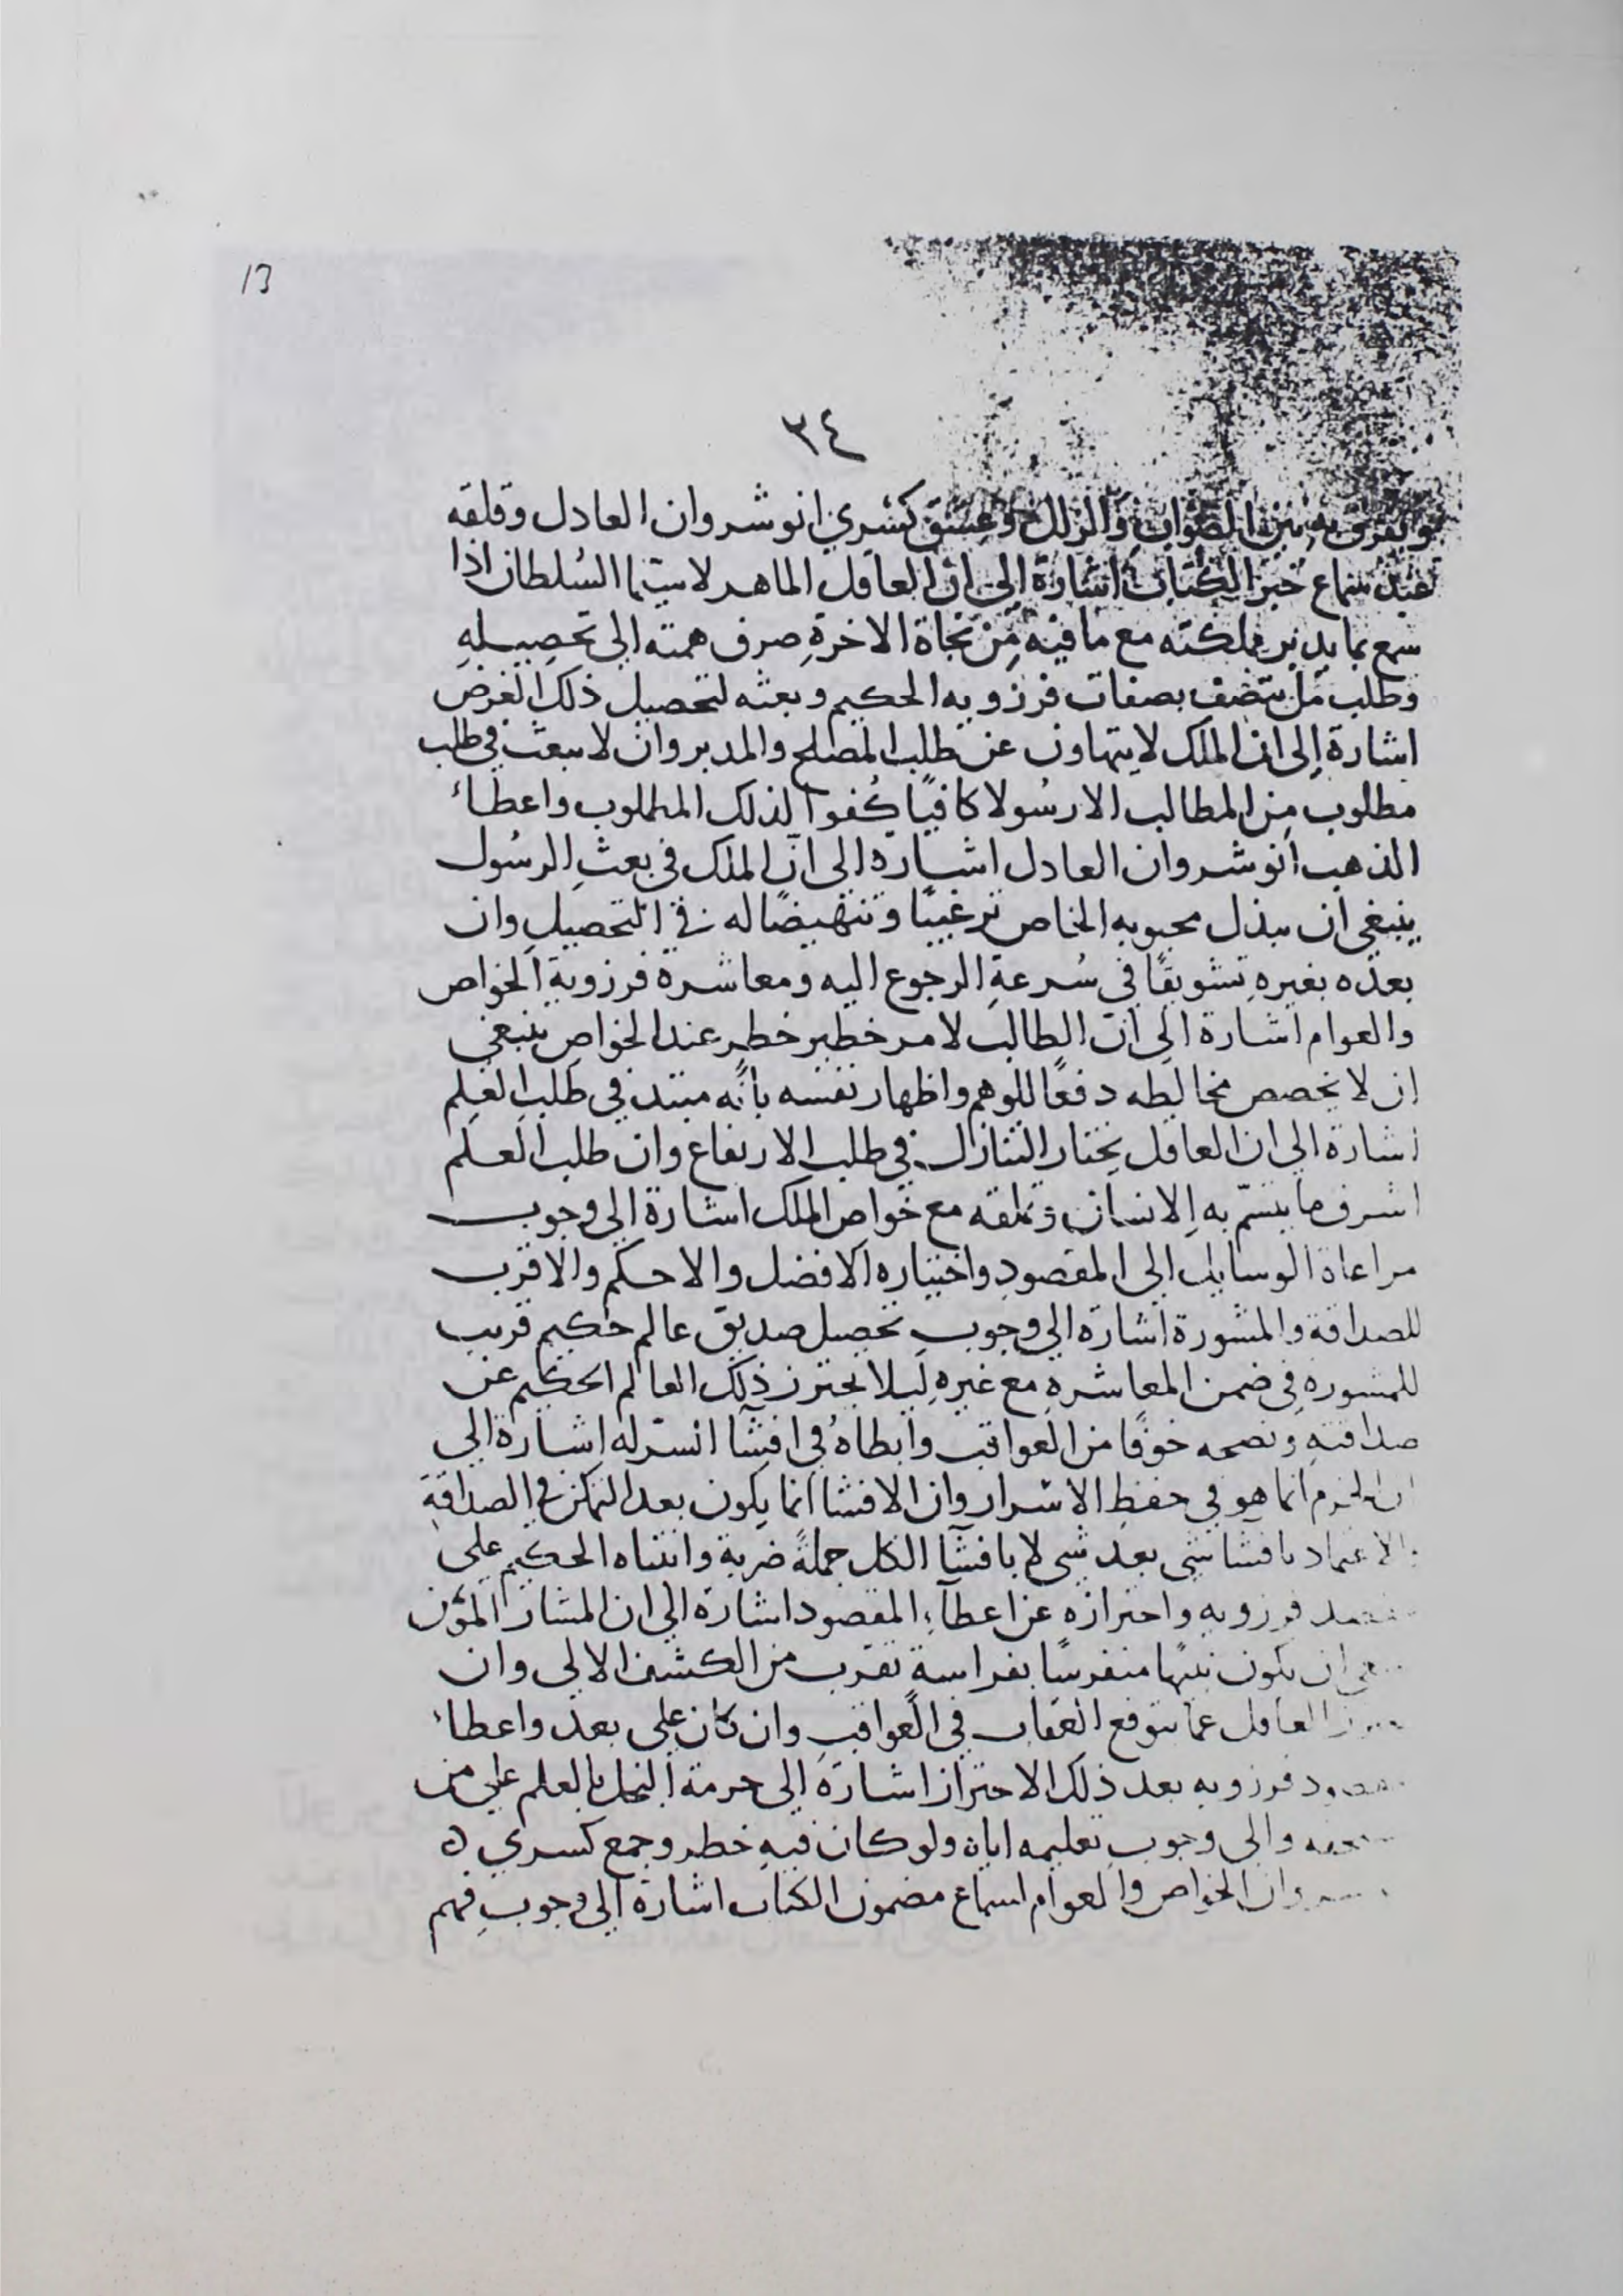 13
٣٤
والزلل وعشق كسري انوشروان العادل وقلقه
عند سماع خبر الكتاب اشارة الى ان العاقل الماهر لا سيما السلطان اذا
سمع بما يدبر مملكته مع ما فيه من نجاة الاخرةِ صرف همته الى تحصيلهِ
وطلب من يتصف بصفات فرزويه الحكيم وبعثه لتحصيل ذلك الغرض
اشارة الى ان الملك لا يتهاون عن طلب المصلح والمدبر وان لا يبعث في طلب
مطلوب من المطالب الا رسُولا كافيًا كُفوا لذلك المطلوب واعطاء
الذهب انوشروان العادل اشارة الى انّ الملك في بعثِ الرسُول
ينبغي ان يبذل محبوبه الخاص ترغيبًا وتنهيضًا له في التحصيلِ وان
يعده بغيرهِ تشويقًا في سُرعةِ الرجوع اليه ومعاشرة فرزوية الخواص
والعوام اشارة الى ان الطالب لامر خطير خطر عند الخواصِ ينبغي
ان لا يخصص مخالطه دفعًا للوهم واظهار نفسه بانّه مبتد في طلب العلم
اشارة الى ان العاقل يختار التنازل في طلب الارتفاع وان طلب العلم
اشرف ما يتسّم به الانسان وتملقه مع خواص الملك اشارة الى وجوب
مراعاة الوسايل الى المقصودِ واختياره الافضل والاحكم والاقرب
للصداقة والمشورة اشارة الى وجوب تحصيل صديق عالم حكيم قريب
للمشورةِ في ضمن المعاشرةِ مع غيرهِ ليلا يحترز ذلك العالم الحكيم عن
صداقتهِ ونصحه خوفًا من العواقب وابطاهُ في افشآ السّر له اشارة الى
ان الحزم انما هو في حفظِ الاسرار وان الافشا انما يكون بعد التمكن في الصداقةِ
والاعتماد بافشا شي بعد شي لا بافشآ الكل جملةً ضربة وانتباه الحكيم على
فرزويه واحترازه عن اعطآء المقصود اشارة الى ان المشار المؤتمن
ان يكون نبيهًا متفرسًا بفراسة تقرب من الكشف الالهي وان
العاقل عما يتوقع العقاب في العواقب وان كان على بعد واعطاء
فرزويه بعد ذلك الاحتراز اشارة الى حرمة البخل بالعلم على من
والى وجوبِ تعليمه اياه ولو كان فيهِ خطر وجمع كسري
الخواص والعوام لسماع مضمون الكتاب اشارة الى وجوبِ فهم